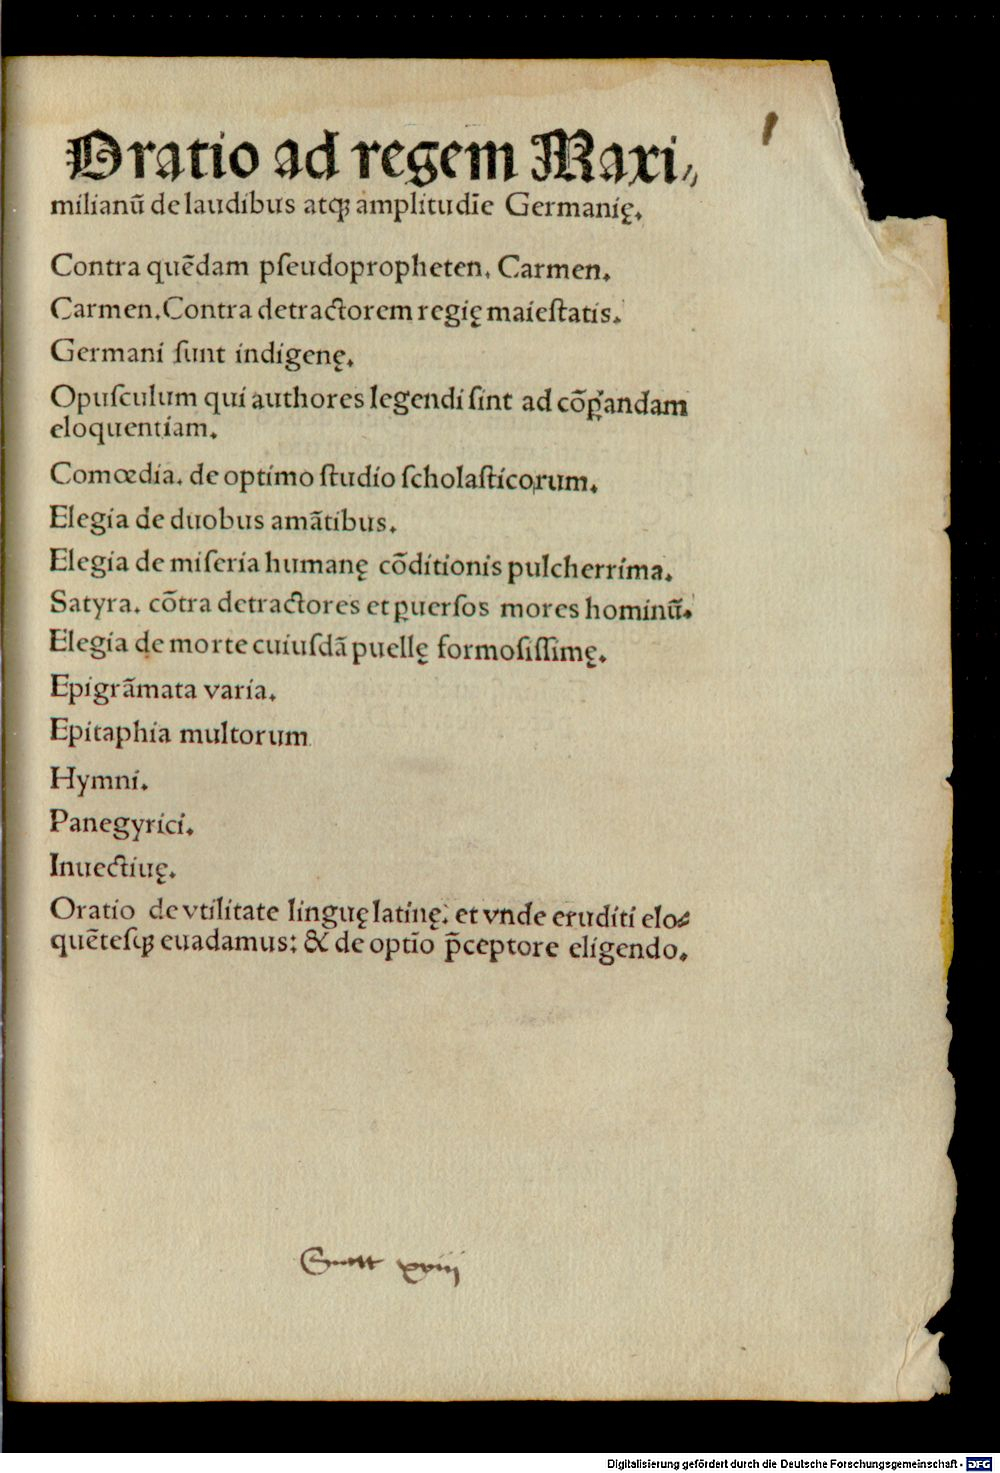 Oratio ad regem Maxi⸗
milianū de laudibus atq; amplitudīe Germanię.
Contra quēdam pſeudopropheten. Carmen.
Carmen. Contra detractorem regię maieſtatis.
Germani ſunt indigenę.
Opuſculum qui authores legendi ſint ad cōꝑandam
eloquentiam.
Comœdia. de optimo ſtudio ſcholaſticorum.
Elegia de duobus amātibus.
Elegia de miſeria humanę cōditionis pulcherrima.
Satyra. cōtra detractores et ꝑuerſos mores hominū.
Elegia de morte cuiuſdā puellę formoſiſſimę.
Epigrāmata varia.
Epitaphia multorum
Hymni.
Panegyrici.
Inuectiuę.
Oratio de vtilitate linguę latinę. et vnde eruditi elo⸗
quēteſq; euadamus: & de optīo p̄ceptore eligendo.
xviii
Digitalisierung gefördert durch die Deutsche Forschungsgemeinschaft - DFG